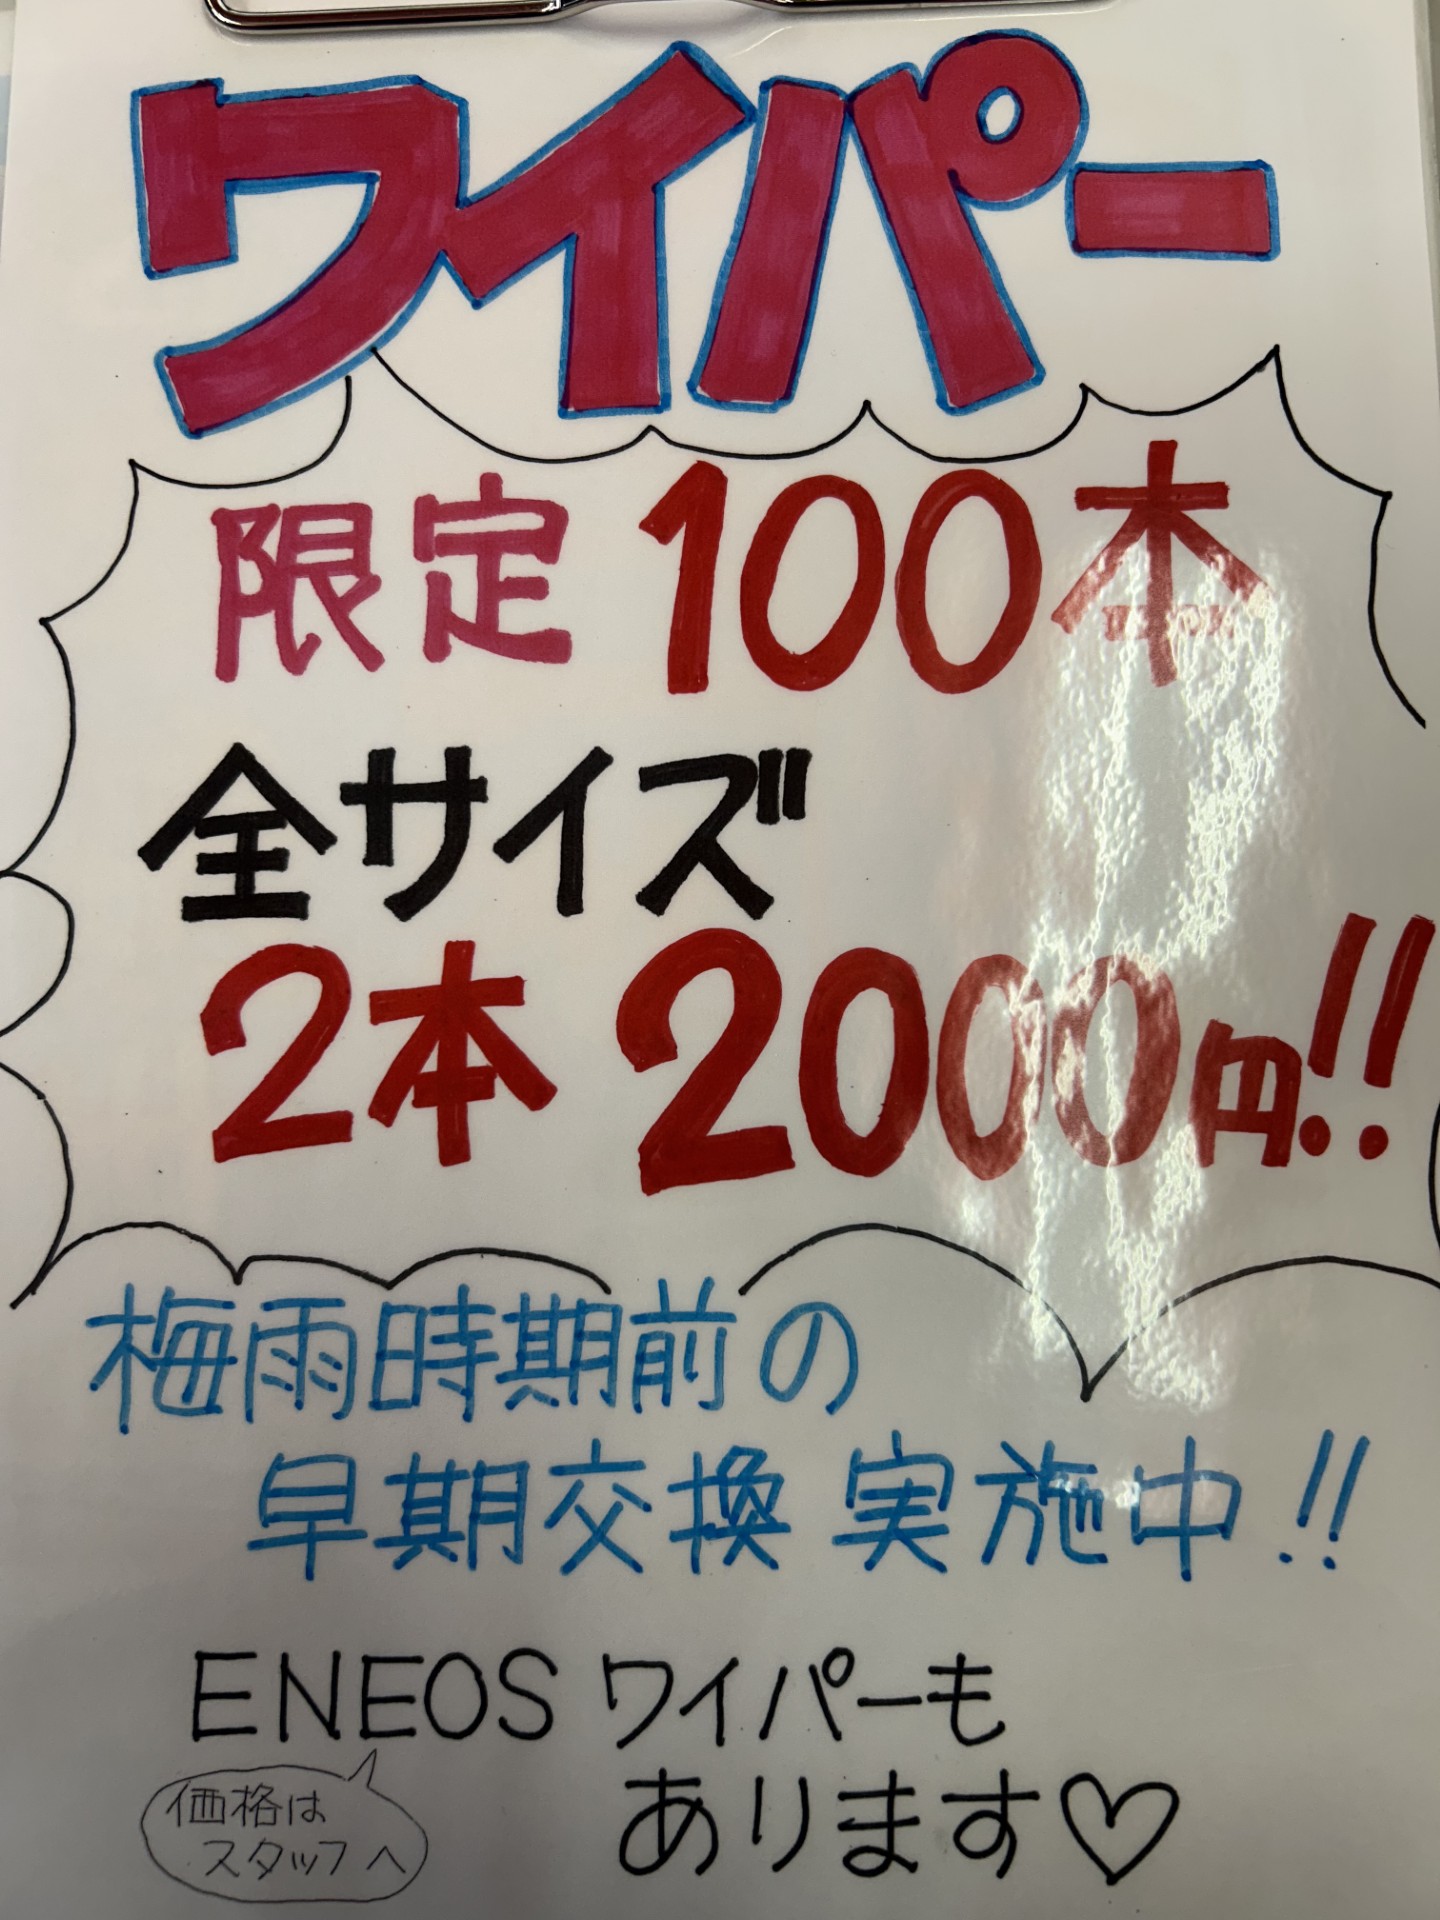 ワイパー
限定 100本
全サイズ
2本 2000円!!
梅雨時期前の
早期交換 実施中!!
ENEOS ワイパーも
あります♡
価格は
スタッフへ